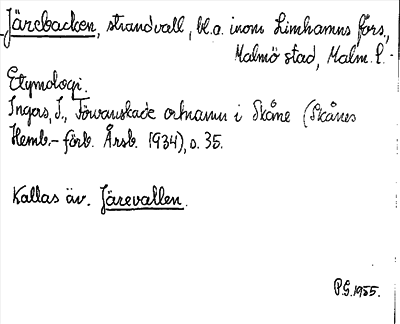 Järebacken, strandvall, bl.a. inom Limhamns förs.,
Malmö stad, Malm. l.
Etymologi.
Ingers, I., Försvenskade ortnamn i Skåne (Skånes
Hemb.-förb. Årsb. 1934), s. 35.
Kallas äv. Järavallen.
P.G. 1955.